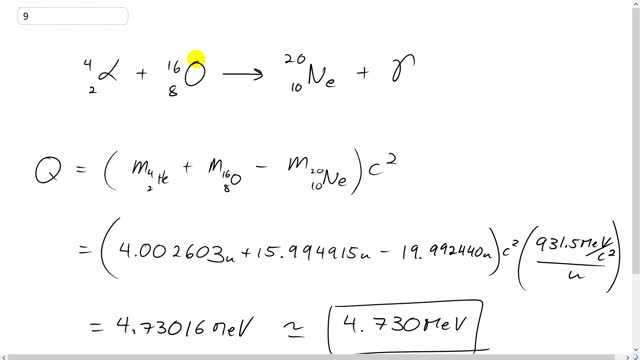 9
⁴₂α + ¹⁶₈O → ²⁰₁₀Ne + γ
Q = (m⁴₂He + m¹⁶₈O − m²⁰₁₀Ne)c²
= (4.002603u + 15.994915u − 19.992440u)c² (931.5 MeV/c² / u)
= 4.73016 MeV ≃ 4.730 MeV